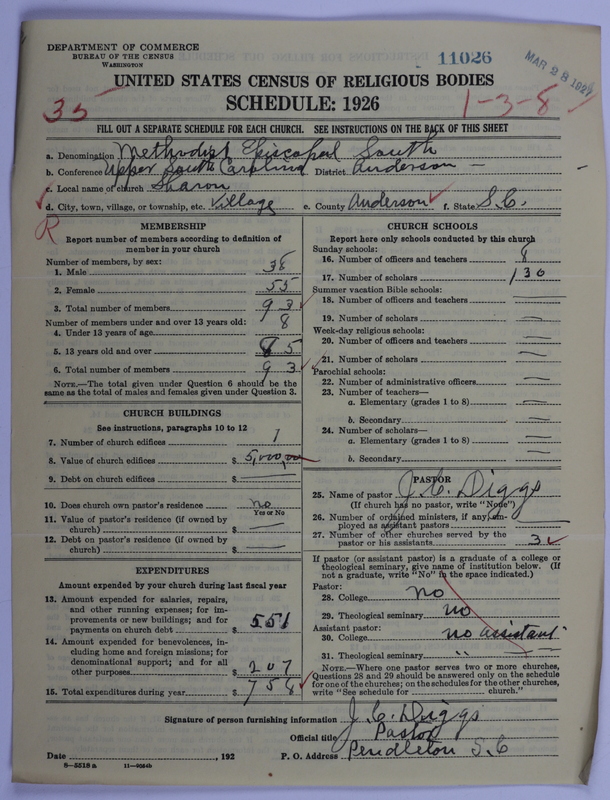 DEPARTMENT OF COMMERCE
BUREAU OF THE CENSUS
WASHINGTON
11026
MAR 28 1927
UNITED STATES CENSUS OF RELIGIOUS BODIES
SCHEDULE: 1926
35
1-3-8
FILL OUT A SEPARATE SCHEDULE FOR EACH CHURCH. SEE INSTRUCTIONS ON THE BACK OF THIS SHEET
a. Denomination Methodist Episcopal South
b. Conference Upper South Carolina District Anderson
c. Local name of church Sharon
d. City, town, village, or township, etc. Village e. County Anderson f. State S.C.
R
MEMBERSHIP
Report number of members according to definition of member in your church
Number of members, by sex:
1. Male 38
2. Female 55
3. Total number of members 93
Number of members under and over 13 years old:
4. Under 13 years of age 8
5. 13 years old and over 85
6. Total number of members 93
NOTE.—The total given under Question 6 should be the
same as the total of males and females given under Question 3.
CHURCH BUILDINGS
See instructions, paragraphs 10 to 12
7. Number of church edifices 1
8. Value of church edifices $ 5,000,00
9. Debt on church edifices $
10. Does church own pastor's residence no
Yes or No
11. Value of pastor's residence (if owned by
church) $
12. Debt on pastor's residence (if owned by
church) $
EXPENDITURES
Amount expended by your church during last fiscal year
13. Amount expended for salaries, repairs,
and other running expenses; for im-
provements or new buildings; and for
payments on church debt $ 551
14. Amount expended for benevolences, in-
cluding home and foreign missions; for
denominational support; and for all
other purposes $ 207
15. Total expenditures during year $ 758
CHURCH SCHOOLS
Report here only schools conducted by this church
Sunday schools:
16. Number of officers and teachers 8
17. Number of scholars 130
Summer vacation Bible schools:
18. Number of officers and teachers
19. Number of scholars
Week-day religious schools:
20. Number of officers and teachers
21. Number of scholars
Parochial schools:
22. Number of administrative officers
23. Number of teachers—
a. Elementary (grades 1 to 8)
b. Secondary
24. Number of scholars—
a. Elementary (grades 1 to 8)
b. Secondary
PASTOR
25. Name of pastor J. C. Diggs
(If church has no pastor, write "None")
26. Number of ordained ministers, if any, em-
ployed as assistant pastors
27. Number of other churches served by the
pastor or his assistants 3
If pastor (or assistant pastor) is a graduate of a college or
theological seminary, give name of institution below. (If
not a graduate, write "No" in the space indicated.)
Pastor:
28. College no
29. Theological seminary no
Assistant pastor:
30. College no assistant
31. Theological seminary "
NOTE.—Where one pastor serves two or more churches,
Questions 28 and 29 should be answered only on the schedule
for one of the churches; on the schedules for the other churches,
write "See schedule for church."
Signature of person furnishing information J. C. Diggs
Official title Pastor
Date , 192 P. O. Address Pendleton S.C
8-5518 a 11-9554b